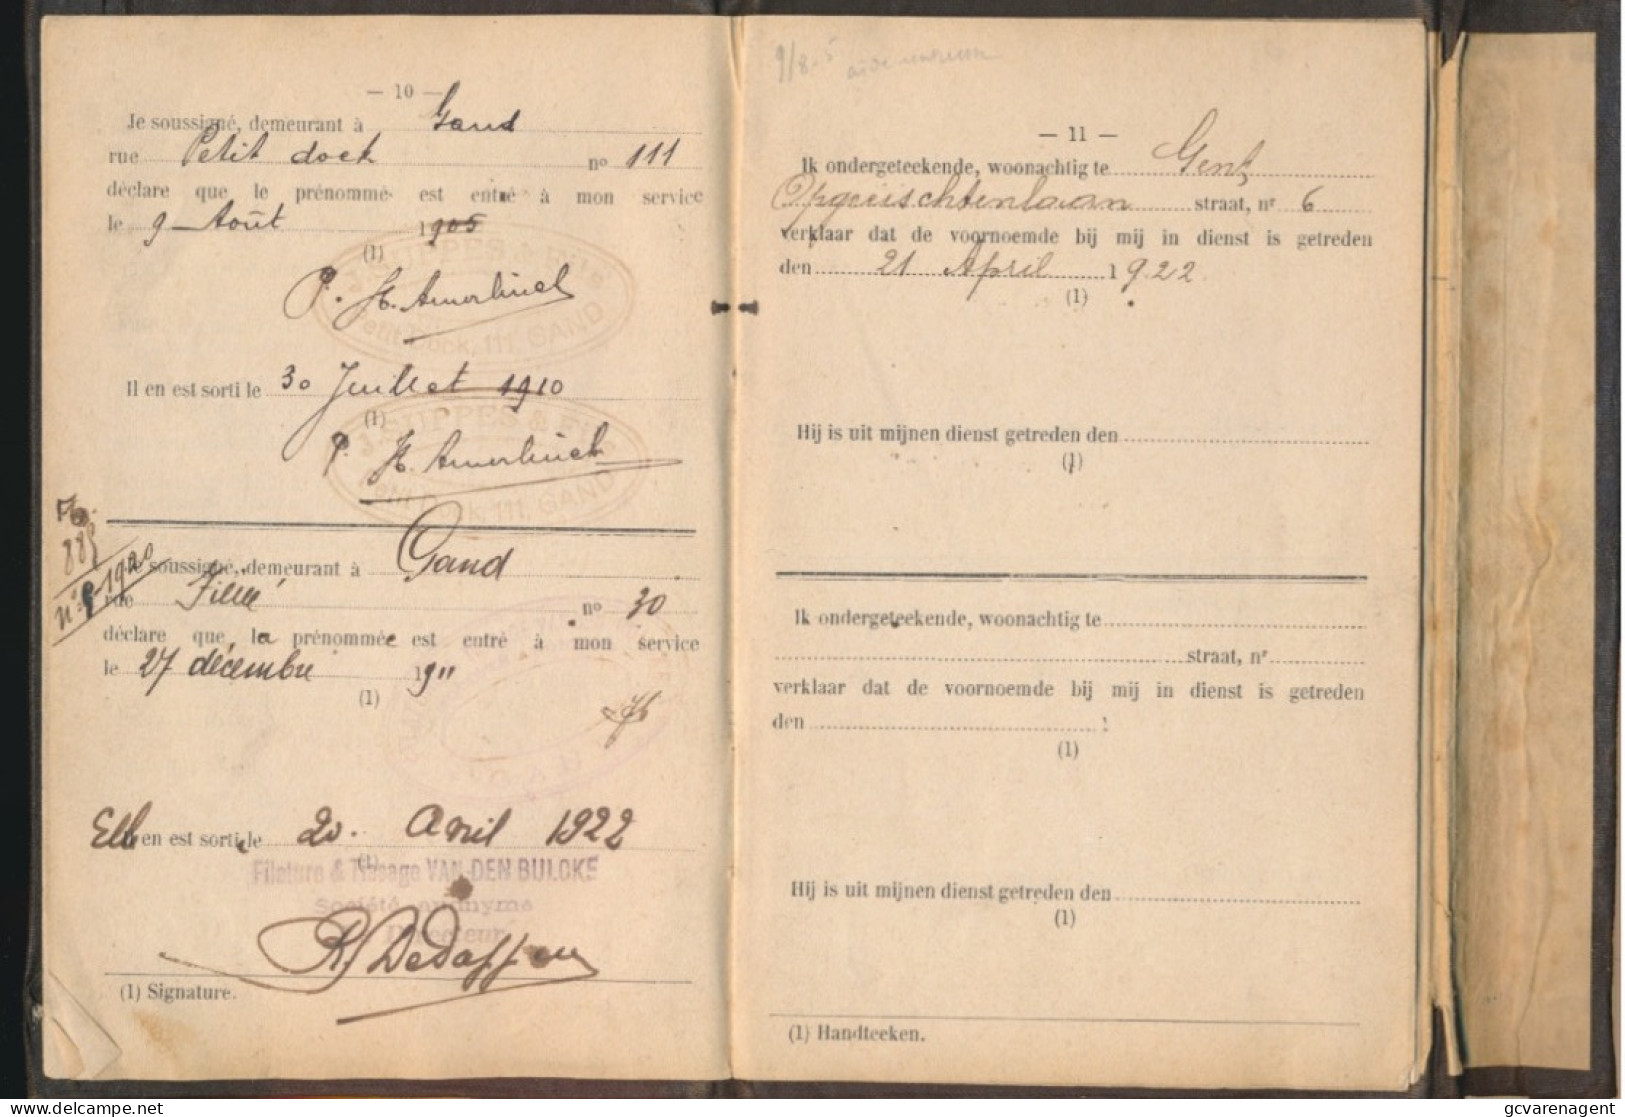 — 10 —
Je soussigné, demeurant à Gand
rue Petit dock nº 111
déclare que le prénommé est entré à mon service
le 9 Août 1905
(1)
P. H.
Il en est sorti le 30 Juillet 1910
(1)
P. H.
Petit Dock, 111, GAND
885
nº 9-1920
Je soussigné, demeurant à Gand
rue nº 30
déclare que la prénommée est entré à mon service
le 27 décembre 1911
(1)
Elle en est sortie le 20 Avril 1922
(1)
Filature & Tissage VAN DEN BULCKE
Société anonyme
Directeur
(1) Signature.
9/8-5
aide
— 11 —
Ik ondergeteekende, woonachtig te Gent
Opgeiischtenlaan straat, nr 6
verklaar dat de voornoemde bij mij in dienst is getreden
den 21 April 1922
(1)
Hij is uit mijnen dienst getreden den
(1)
Ik ondergeteekende, woonachtig te
straat, nr
verklaar dat de voornoemde bij mij in dienst is getreden
den 1
(1)
Hij is uit mijnen dienst getreden den
(1)
(1) Handteeken.
www.delcampe.net
gcvarenagent